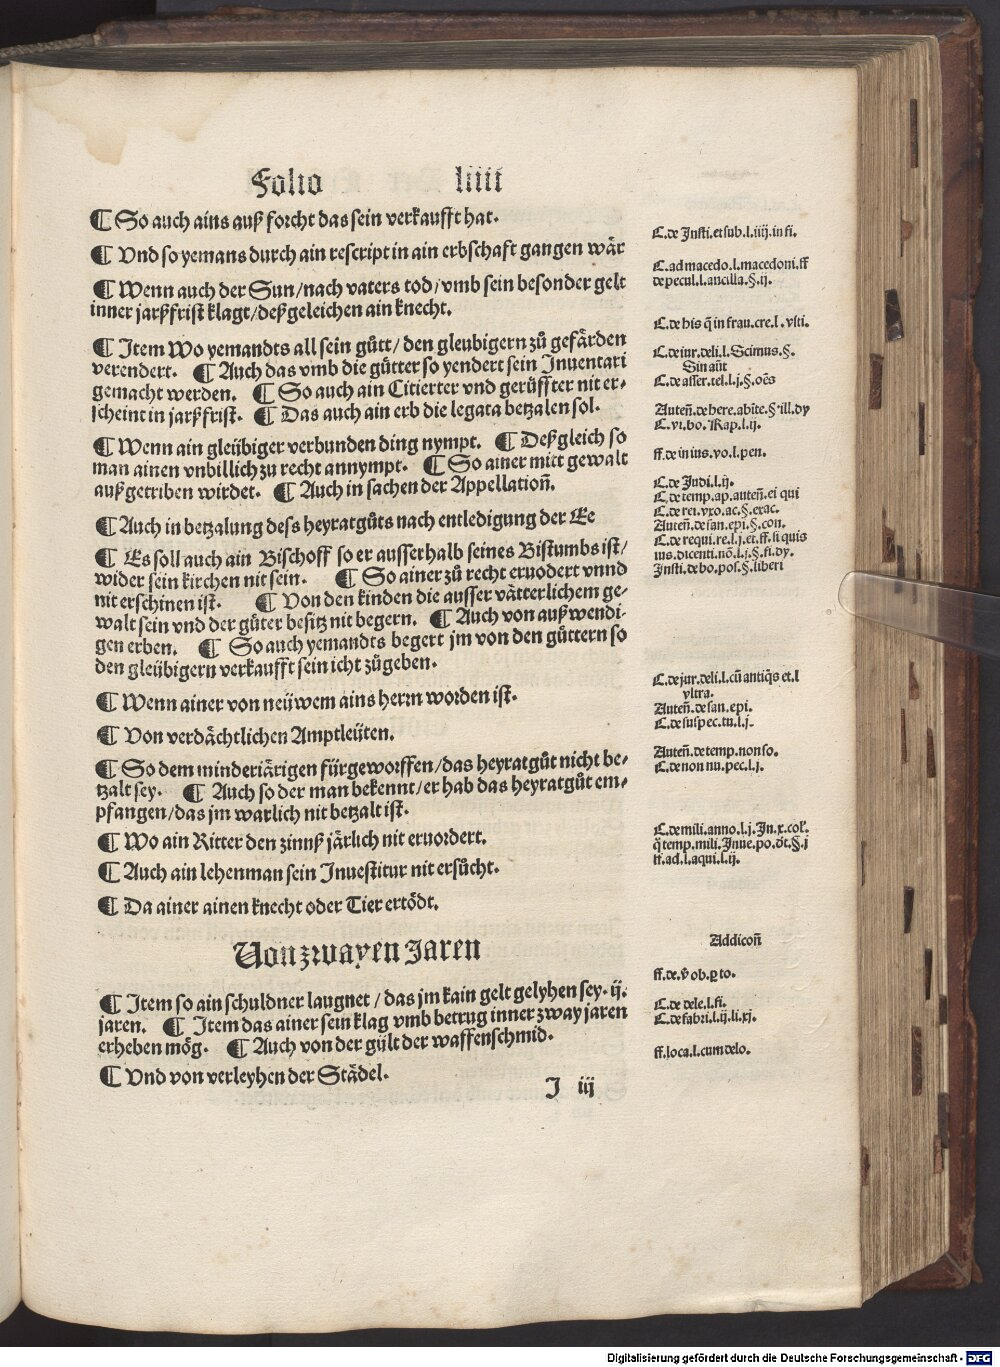 Folio liiii
¶ So auch ains auß forcht das sein verkaufft hat.
¶ Vnd so yemans durch ain rescript in ain erbschaft gangen wår
¶ Wenn auch der Sun/nach vaters tod/vmb sein besonder gelt
inner jarßfrist klagt/deßgeleichen ain knecht.
¶ Item Wo yemandts all sein gůtt/den gleubigern zů gefården
verendert. ¶ Auch das vmb die gůtter so yendert sein Inuentari
gemacht werden. ¶ So auch ain Citierter vnd gerůffter nit er⸗
scheint in jarßfrist. ¶ Das auch ain erb die legata betzalen sol.
¶ Wenn ain gleübiger verbunden ding nympt. ¶ Deßgleich so
man ainen vnbillich zu recht annympt. ¶ So ainer mitt gewalt
außgetriben wirdet. ¶ Auch in sachen der Appellation̄.
¶ Auch in betzalung dess heyratgůts nach entledigung der Ee
¶ Es soll auch ain Bischoff so er ausserhalb seines Bistumbs ist/
wider sein kirchen nit sein. ¶ So ainer zů recht eruodert vnnd
nit erschinen ist. ¶ Von den kinden die ausser våtterlichem ge⸗
walt sein vnd der gůter besitz nit begern. ¶ Auch von außwendi⸗
gen erben. ¶ So auch yemandts begert jm von den gůttern so
den gleübigern verkaufft sein icht zůgeben.
¶ Wenn ainer von neüwem ains herrn worden ist.
¶ Von verdåchtlichen Amptleüten.
¶ So dem minderiårigen fürgeworffen/das heyratgůt nicht be⸗
tzalt sey. ¶ Auch so der man bekennt/er hab das heyratgůt em⸗
pfangen/das jm warlich nit betzalt ist.
¶ Wo ain Ritter den zinnß jårlich nit eruordert.
¶ Auch ain lehenman sein Inuestitur nit ersůcht.
¶ Da ainer ainen knecht oder Tier ertödt.
Von zwayen Jaren
¶ Item so ain schuldner laugnet/das jm kain gelt gelyhen sey. ij.
jaren. ¶ Item das ainer sein klag vmb betrug inner zway jaren
erheben mög. ¶ Auch von der gült der waffenschmid.
¶ Vnd von verleyhen der Stådel.
I iij
C. de Insti. et sub. l. iiij. in fi.
C. ad macedo. l. macedoni. ff
de pecul. l. ancilla. §. ij.
C. de his q̄ in frau. cre. l. vlti.
C. de iur. deli. l. Scimus. §.
Sin aūt
C. de asser. tol. l. j. §. oēs
Auten̄. de here. abīte. § ill. dy
C. vi. bo. Rap. l. ij.
ff. de in ius. vo. l. pen.
C. de Judi. l. ij.
C. de temp. ap. auten̄. ei qui
C. de rei. vxo. ac. §. exac.
Auten̄. de san. epi. §. con.
C. de requi. re. l. j. et. ff. si quis
ius. dicenti. nō. l. j. §. fi. dy.
Insti. de bo. pos. §. liberi
C. de jur. deli. l. cū antiq̄s et. l
vltra.
Auten̄. de san. epi.
C. de suspec. tu. l. j.
Auten̄. de temp. non so.
C. de non nu. pec. l. j.
C. de mili. anno. l. j. In. x. col.
q̄ temp. mili. Inue. po. dt. §. j
ff. ad. l. aqui. l. ij.
Addicon̄
ff. de. v̄ ob. ꝓ to.
C. de dele. l. fi.
C. de fabri. l. ij. li. xj.
ff. loca. l. cum delo.
Digitalisierung gefördert durch die Deutsche Forschungsgemeinschaft - DFG